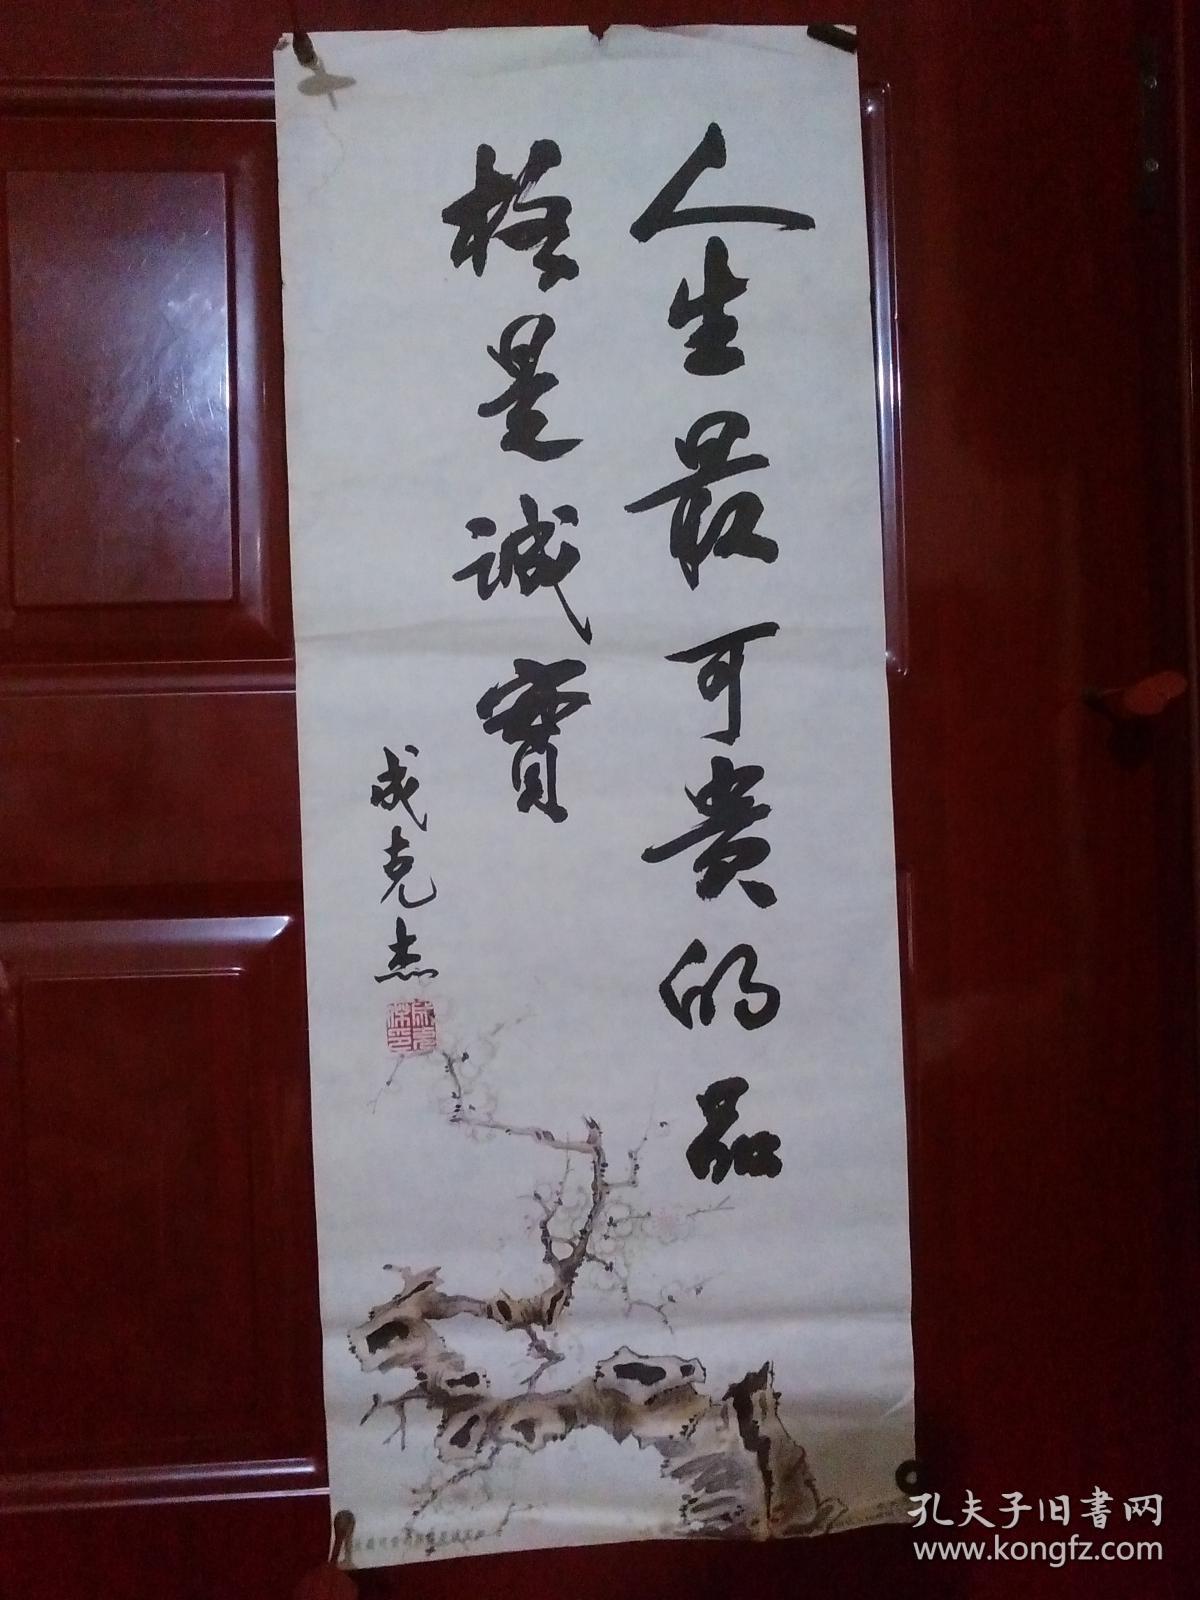 人生最可贵的品
格是诚實
成克杰
成克
傑印
孔夫子旧書网
www.kongfz.com